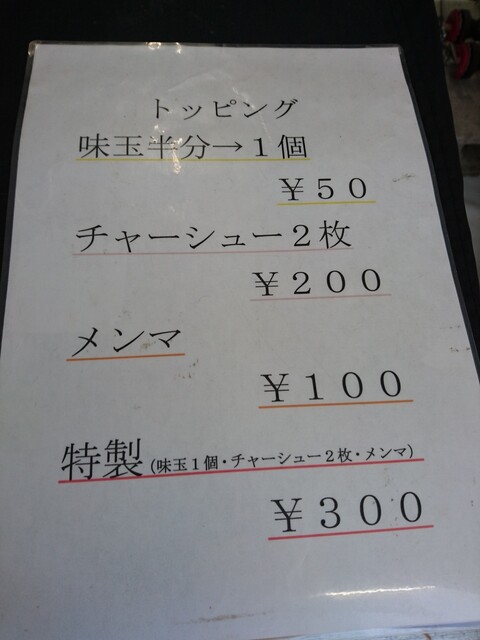 トッピング
味玉半分→１個
￥５０
チャーシュー２枚
￥２００
メンマ
￥１００
特製（味玉１個・チャーシュー２枚・メンマ）
￥３００